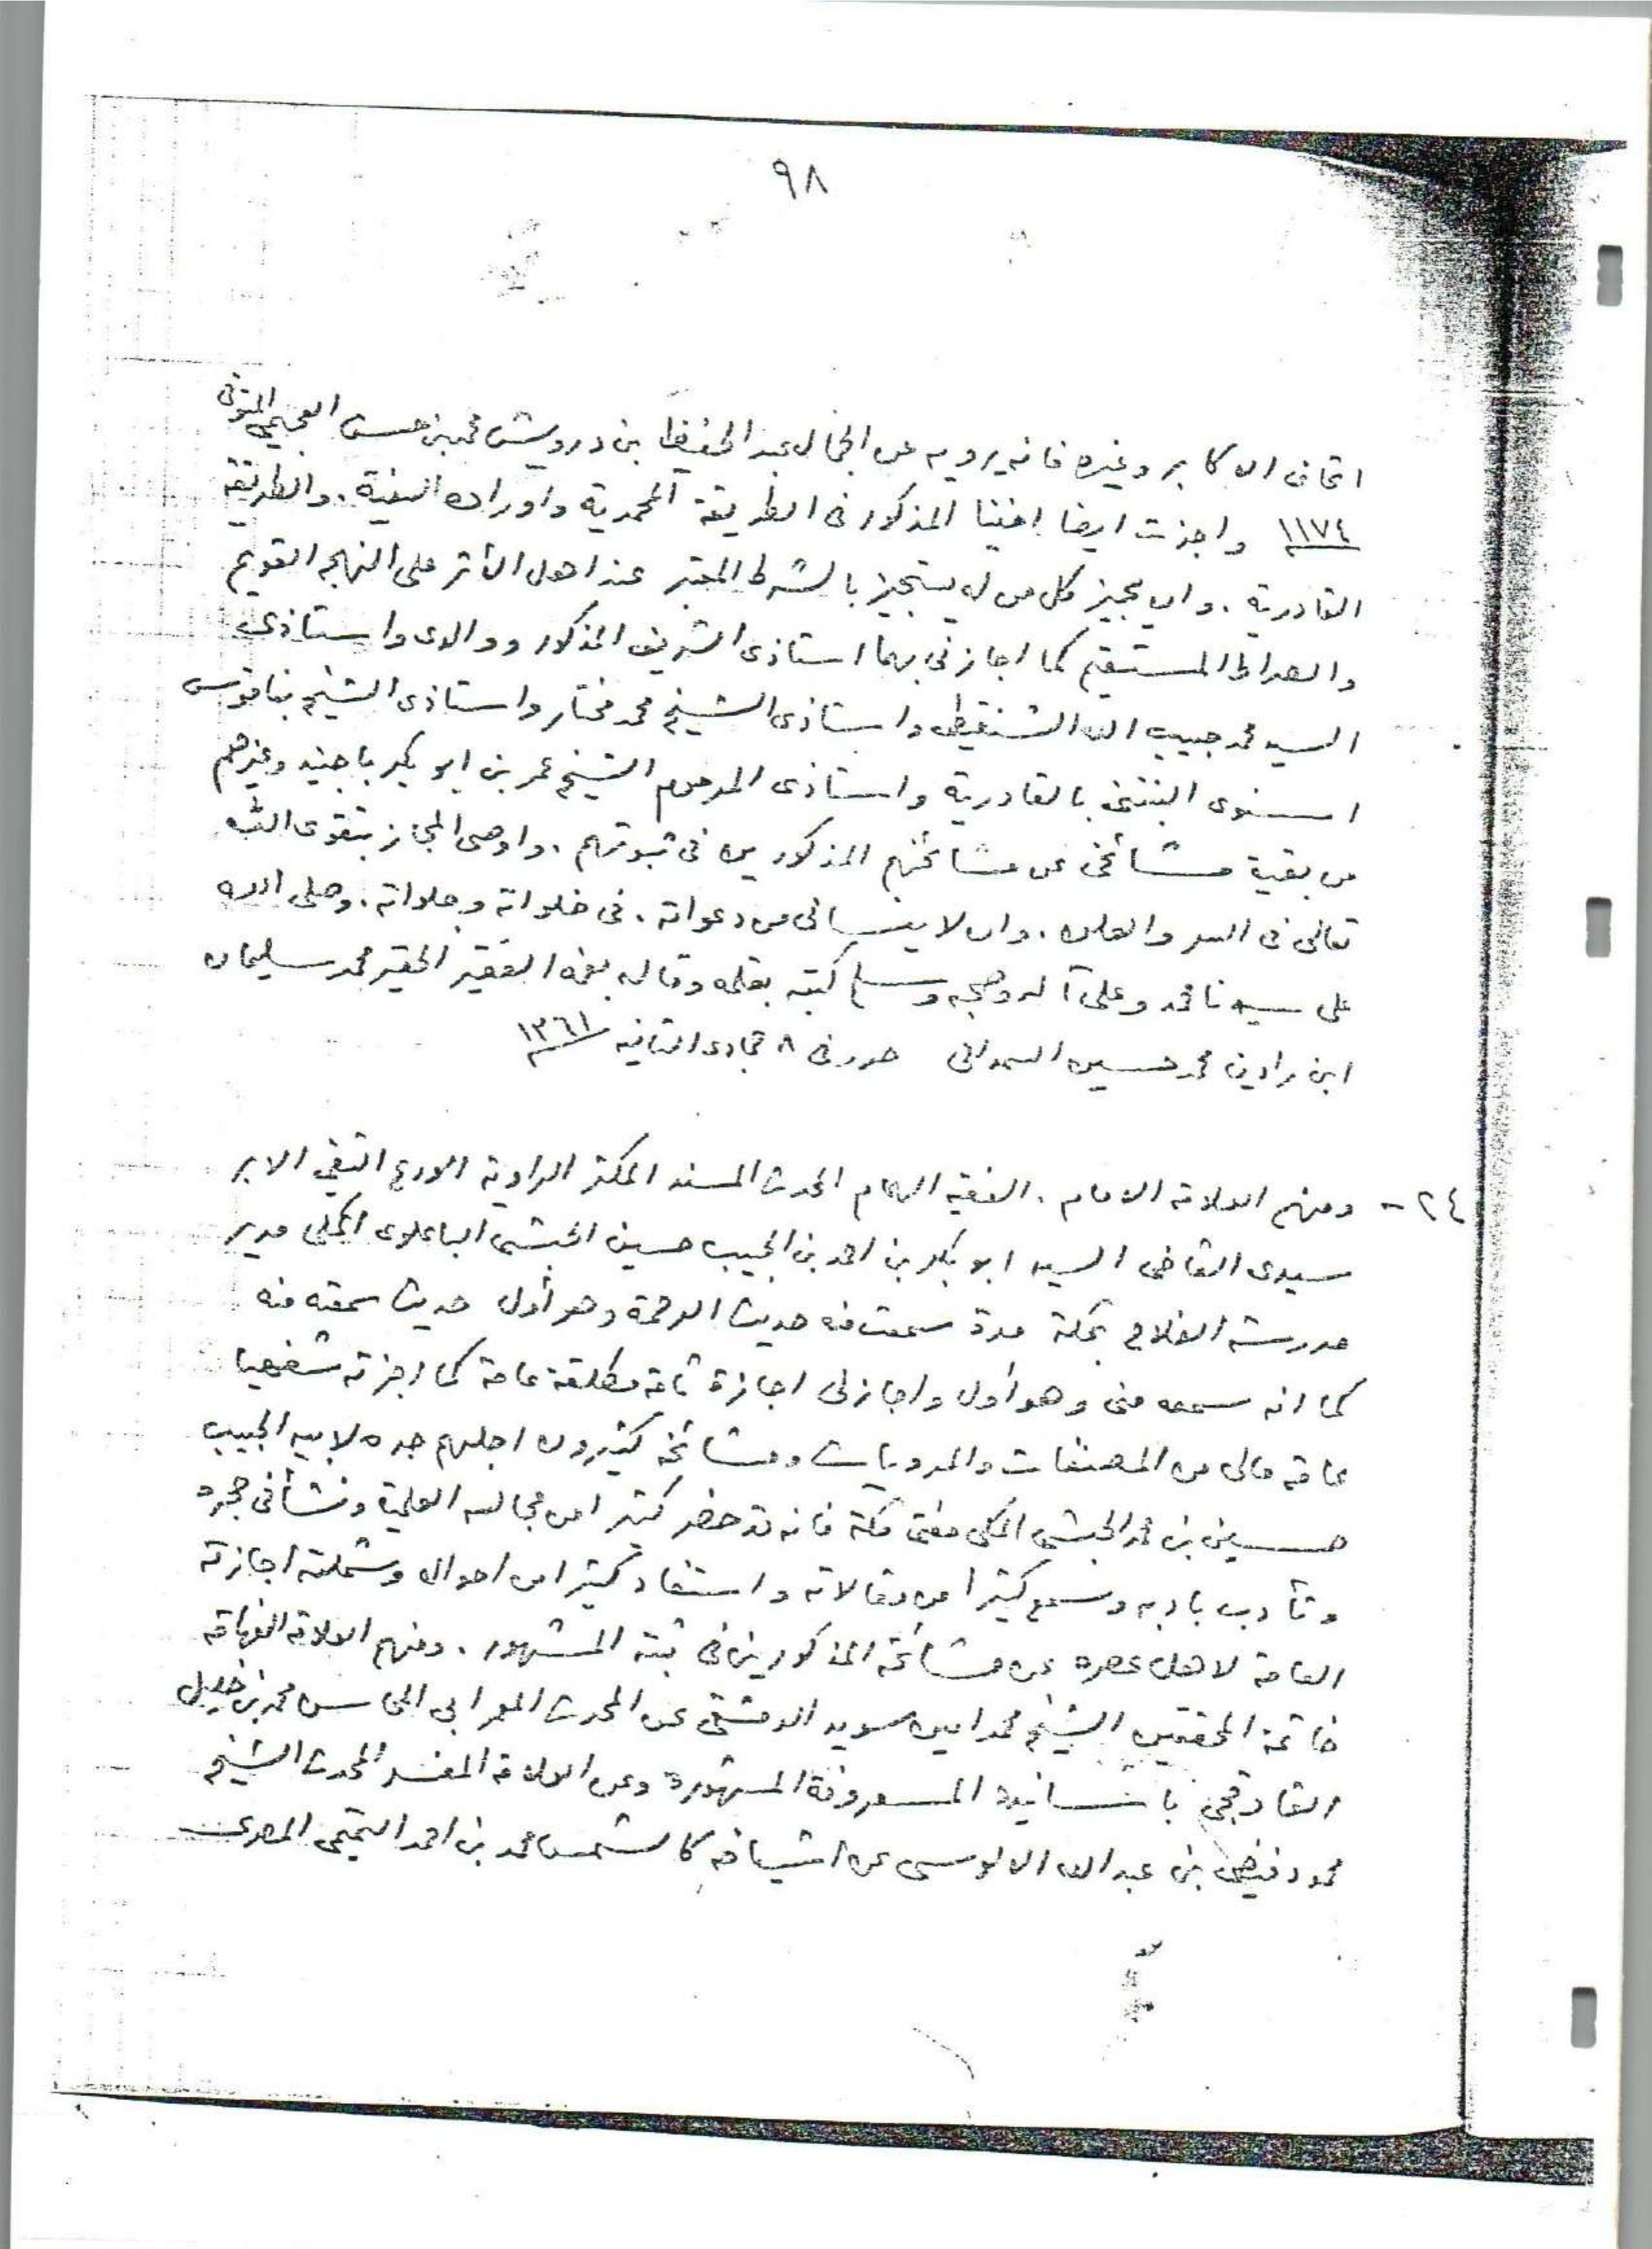 ٩٨
اتحاف الاكابر وغيره فانه يرويه عن الجمال عبد الحفيظ بن درويش محمد بن حسن العجيمي المتوفى
١١٧٤ واجزت ايضا اخينا المذكور فى الطريقة المحمدية واوراده السنية. والطريقة
القادرية. وان يجيز كل من له يستجيز بالشرط المعتبر عند اهل الأثر على النهج القويم
والصراط المستقيم كما اجازنى بهما استاذى الشريف المذكور ووالدى واستاذى
السيد محمد حبيب الله الشنقيطى واستاذى الشيخ محمد مختار واستاذى الشيخ بناقوس
اسنوى البنتنى بالقادرية واستاذى المرحوم الشيخ عمر بن ابو بكر باجنيد وغيرهم
من بقية مشائخى عن مشائخهم المذكورين فى ثبوتهم. واوصى المجاز بتقوى الله
تعالى فى السر والعلن. وان لا ينسانى من دعواته. فى خلواته وجلواته. وصلى الله
على سيدنا محمد وعلى آله وصحبه وسلم كتبه بقلمه وقاله بفمه الفقير الحقير محمد سليمان
ابن رادين محمد حسين السمداني حرر فى ٨ جمادى الثانيه ١٣٦١
٢٤ - ومنهم العلامة الامام. الفقيه الهمام المحدث المسند المكثر الراوية الاورع التقي الابر
سيدى القاضى السيد ابو بكر بن احمد بن الحبيب حسين الحبشى الباعلوى المكى مدير
مدرسة الفلاح بمكة مدة سمعت منه حديث الرحمة وهو أول حديث سمعته منه
كما انه سمعه منى وهو أول واجازنى اجازة تامة مطلقة عامة كما اجزته شفهيا
عامة مالى من المصنفات والمرويات ومشائخه كثيرون اجلهم جده لابيه الحبيب
حسين بن محمد الحبشى المكى مفتى مكة فانه قد حضر كثيرا من مجالسه العلمية ونشأ فى حجره
وتأدب بادبه وسمع كثيرا من مقالاته واستفاد كثيرا من احواله وشملته اجازته
العامة لاهل عصره عن مشائخه المذكورين فى ثبته المشهور. ومنهم العلامة الفهامة
خاتمة المحققين الشيخ محمد امين سويد الدمشقى عن المحدث المعمر ابى المحاسن محمد بن خليل
القاوقجى باسانيده المعروفة المشهورة وعن العلامة المفسر المحدث الشيخ
محمود فيضى بن عبد الله الالوسى عن اشياخه كالشمس محمد بن احمد التميمى المصرى